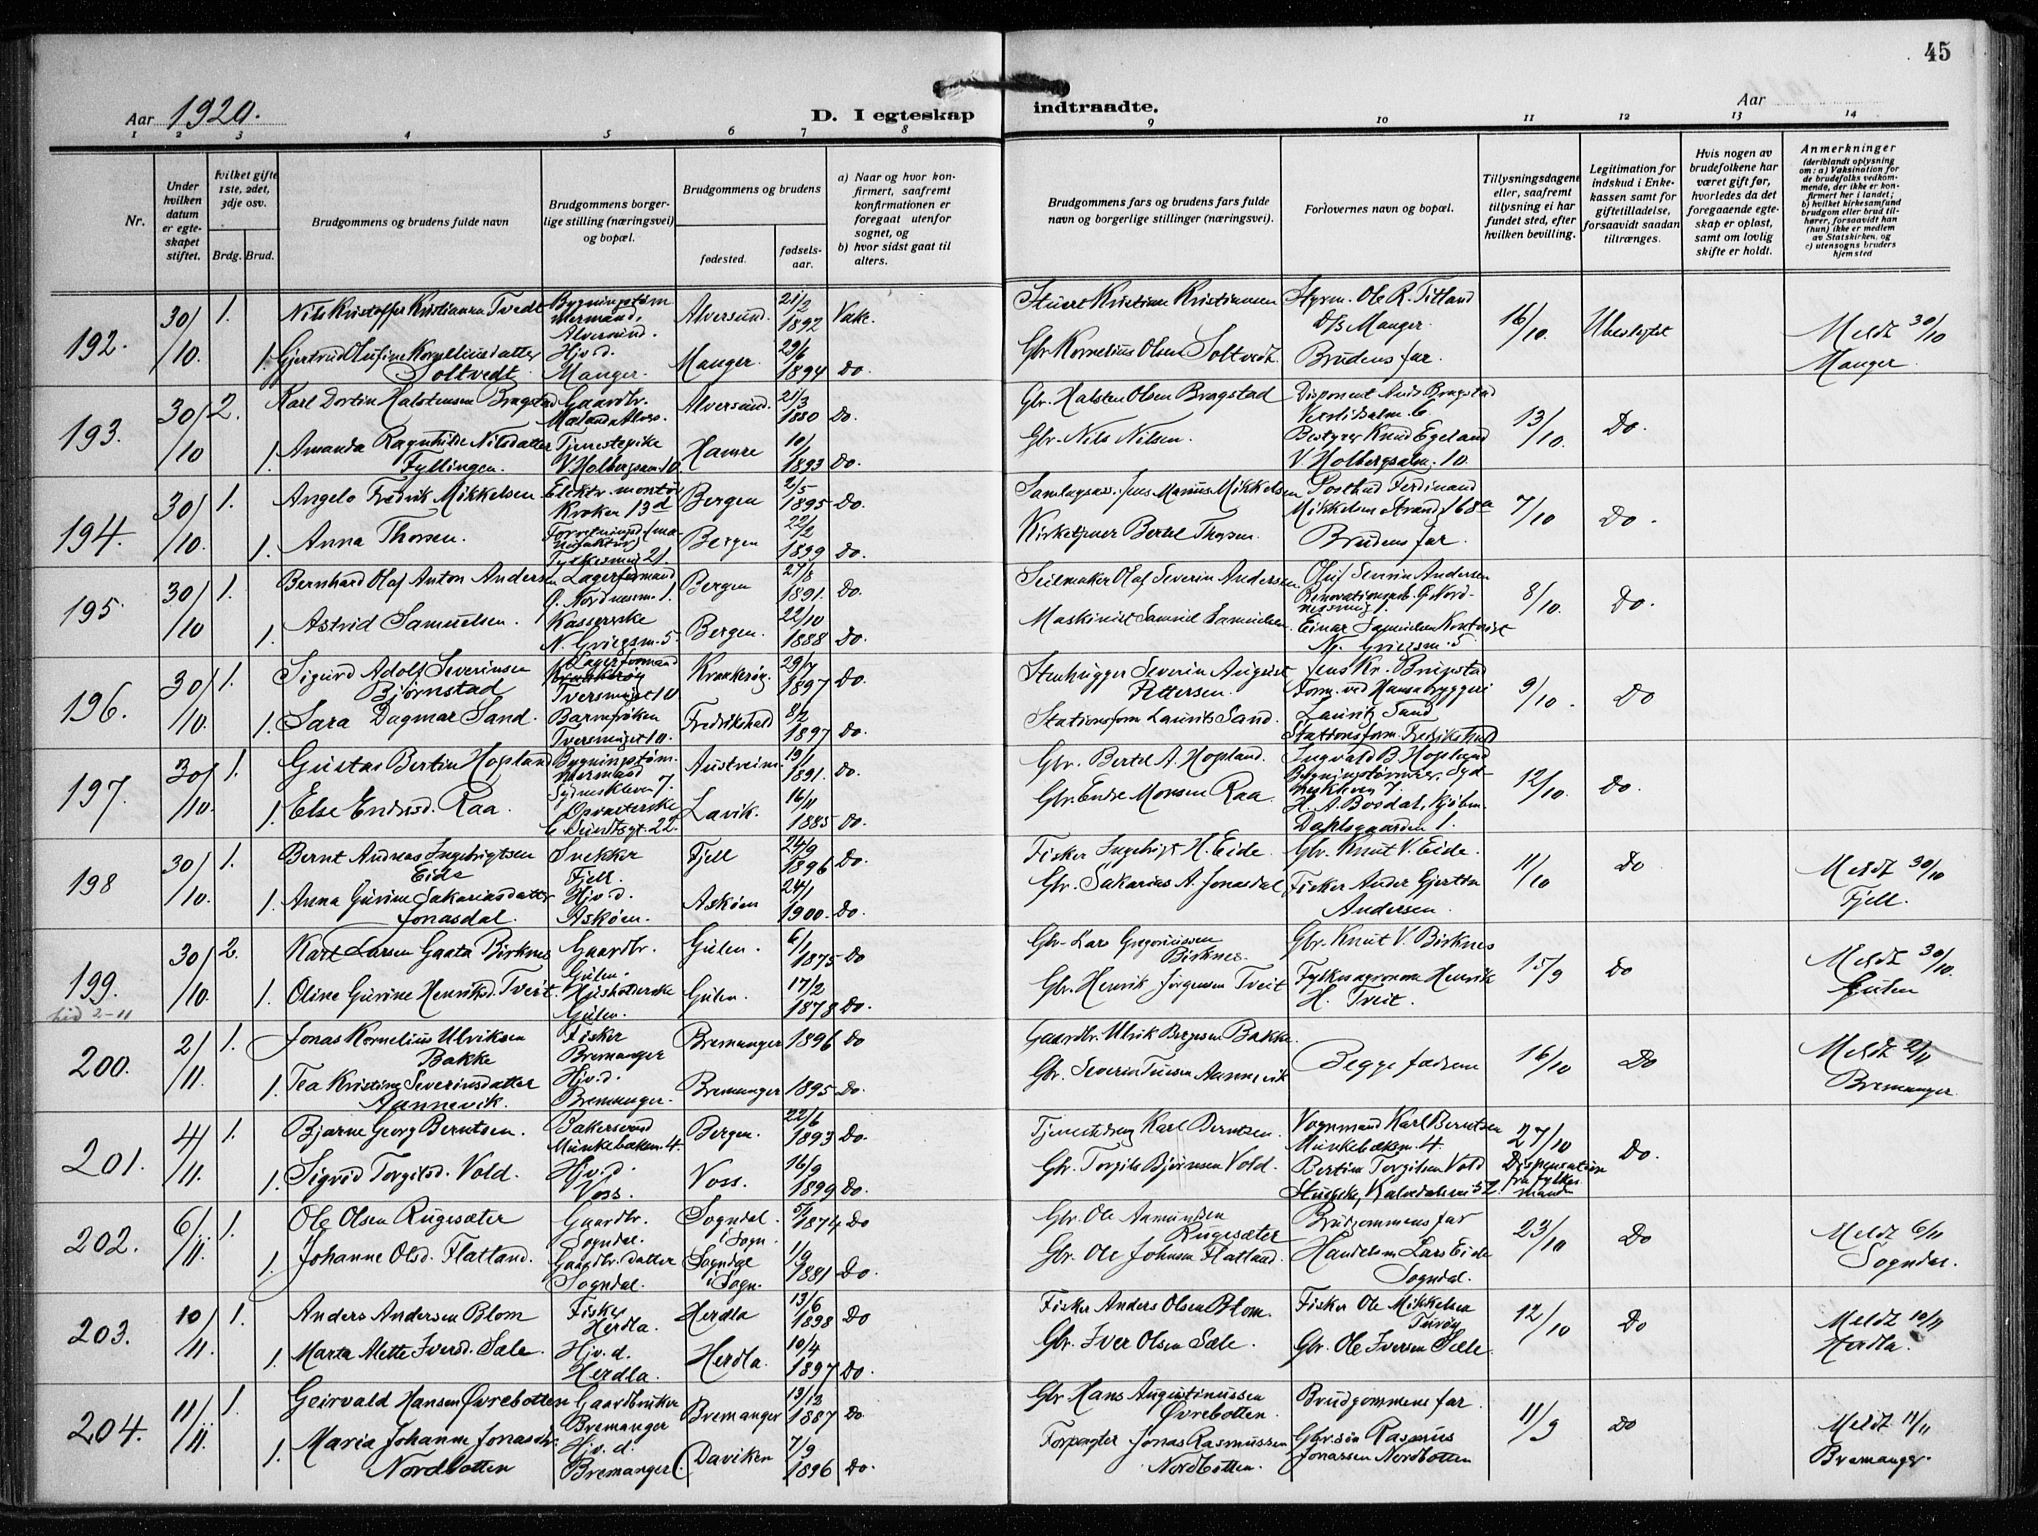 45
Aar 1920.
D. I egteskap indtraadte.
Aar
1 2 3 4 5 6 7 8 9 10 11 12 13 14
Nr.
Under hvilken datum er egteskapet stiftet.
Hvilket gifte 1ste, 2det, 3dje osv.
Brdg. Brud.
Brudgommens og brudens fulde navn
Brudgommens borgerlige stilling (næringsvei) og bopæl.
Brudgommens og brudens
fødested.
fødselsaar.
a) Naar og hvor konfirmert, saafremt konfirmationen er foregaat utenfor sognet, og
b) hvor sidst gaat til alters.
Brudgommens fars og brudens fars fulde navn og borgerlige stillinger (næringsvei).
Forlovernes navn og bopæl.
Tillysningsdagene eller, saafremt tillysning ei har fundet sted, efter hvilken bevilling.
Legitimation for indskud i Enkekassen samt for giftetilladelse, forsaavidt saadan tiltrænges.
Hvis nogen av brudefolkene har været gift før, hvorledes da det foregaaende egteskap er opløst, samt om lovlig skifte er holdt.
Anmerkninger (deriblandt oplysning om: a) Vaksination for de brudefolks vedkommende, der ikke er konfirmert her i landet; b) hvilket kirkesamfund brudgom eller brud tilhører, forsaavidt han (hun) ikke er medlem av Statskirken, og c) utensogns bruders hjemsted
192. 30/10. 1. Nils Kristoffer Kristiansen Tvedt Bygningstømmermand, Alversund. Alversund. 21/2 1892 Vake. Stuert Kristian Kristiansen Styrm. Ole R. Titland D/S Manger. 16/10. Ubeslegtet Meldt 30/10 Manger
1. Gjertrud Olufine Kornelliusdatter Soltvedt Hjv.d. Manger. Manger. 29/6 1894 Do. Gbr Kornelius Olsen Soltvedt. Brudens far.
193. 30/10 2. Karl Dortin Halstensen Bragstad Gaardbr. Alversund. 21/3 1880 Do. Gbr. Halsten Olsen Bragstad Disponent 13/10. Do.
1. Amanda Ragnhilde Nilsdatter Fyllingen. Tjenestepike V. Holbergsalm. 10 Hamre 10/1 1893 Do. Gbr. Nils Nilsen. Bestyrer Knud Egeland V. Holbergsalm. 10.
194. 30/10. 1. Angelo Fredrik Mikkelsen Elektr. montør Kroken 13d Bergen 2/5 1895 Do. Jens Marius Mikkelsen Ferdinand Mikkelsen Strandg. 68a 7/10 Do.
1. Anna Thorsen. Bergen 22/2 1899 Do. Kirketjener Bertel Thorsen. Brudens far.
195. 30/10 1. Bernhard Olaf Anton Andersen Lagerformand Bergen 27/8 1891. Do. Seilmaker Olaf Severin Andersen Oluf Severin Andersen 8/10. Do.
1. Astrid Samuelsen. Kassererske N. Griegsm. 5. Bergen. 22/10 1888 Do. Maskinist Samuel Samuelsen. Einar Samuelsen Kontorist N. Griegsm. 5
196. 30/10. 1. Sigurd Adolf Severinsen Bjørnstad Lagerformand Kraakerøy Tversmuget 10 Kraakerøy. 29/7 1897 Do. Stenhugger Severin August Pettersen. Form. ved Hansa bryggeri 9/10. Do
1. Sara Dagmar Sand. Barnefrøken Tversmuget 10. Fredrikshald 8/2 1897 Do. Stationsform Laurits Sand. Lauritz Sand Stationsform. Fredrikshald
197. 30/10. 1. Gustav Bertin Hopland Bygningstømmermand Sydneskleven 7. Austreim. 19/1 1891. Do. Gbr. Bertel A. Hopland. Ingvald B. Hopland Sydneskleven 7. 12/10. Do.
1. Else Endresd. Raa. Opvarterske Sundtsgt. 22. Lavik. 16/11 1885 Do. Gbr. Endre Monsen Raa. Dahlsgaarden 1.
198 30/10. 1. Bernt Andreas Ingebrigtsen Eide Snekker Fjell. Fjell 24/9 1896 Do. Fisker Ingebrigt H. Eide. Gbr. Knut V. Eide. 11/10 Do Meldt 30/10 Fjell.
1. Anna Gurine Sakariasdatter Jonasdal. Hjv.d. Askøen. Askøen 24/1 1900. Do. Gbr. Sakarias A. Jonasdal Fisker Ander Gjertsen Andersen.
199. 30/10. 2. Karl Larsen Gaata Birknes Gaardbr. Gulen. Gulen. 6/1 1875 Do Gbr. Lars Gregoriussen Birknes. Gbr. Knut V. Birknes 15/9 Do Meldt 30/10. Gulen
1. Oline Gurine Henriksd. Tveit. Husholderske Gulen. Gulen. 17/2 1878 Do. Gbr. Henrik Jørgensen Tveit Fylkesagronom Henrik H. Tveit.
200. 2/11. 1. Jonas Kornelius Ulriksen Bakke Fisker Bremanger Bremanger 1896 Do Gaardbr. Ulrik Bergsen Bakke. Begge fædrene 16/10 Do Meldt 2/11 Bremanger
1. Tea Kristine Severinsdatter Aannevik. Hjv.d. Bremanger. Bremanger 1895 Do. Gbr. Severin Aannevik
201. 4/11. 1. Bjarne Georg Berntsen. Bakersvend Munkebækm. 4. Bergen. 22/6 1893 Do. Tjenestedreng Karl Berntsen. Vognmand Karl Berntsen Munkebækm. 4. 27/10 Dispensation fra fylkesmanden Do.
1. Sigrid Torgilsd. Vold. Hjv.d. Voss. Voss. 16/9 1899 Do. Gbr. Torgils Bjørnsen Vold. Bertin Torgilsen Vold
202. 6/11. 1. Ole Olsen Rugesæter Gaardbr. Sogndal. Sogndal i Sogn. 1874 Do Gbr. Ole Aamundsen Rugesæter Brudgommens far 23/10 Do Meldt 6/11 Sogndal.
1. Johanne Olsd. Flatland. Gaardbr. datter Sogndal. Sogndal i Sogn. 1/9 1881 Do. Gbr. Ole Johnsen Flatland. Handelsm Lars Eide Sogndal.
203. 10/11. 1. Anders Andersen Blom Fisker Herdla. Herdla 13/6 1898 Do Fisker Anders Olsen Blom. Fisker Ole Mikkelsen Turøy 12/10 Do Meldt 10/11 Herdla.
1. Marta Mette Iversd. Sæle. Hjv.d. Herdla. Herdla. 10/4 1897 Do. Gbr. Iver Olsen Sæle. Gbr. Ole Iversen Sæle.
204. 11/11. 1. Geirvald Hansen Øvrebotten Gaardbruker Bremanger Bremanger 13/12 1887 Do Gbr Hans Augustinussen Øvrebotten. Brudgommens far. 11/9 Do Meldt 11/11 Bremanger.
1. Maria Johanne Jonasdtr. Nordbotten Hjv.d. Bremanger Daviken 7/9 1896 Do. Forpagter Jonas Rasmussen Nordbotten. Gbr. søn Rasmus Jonassen Nordbotten